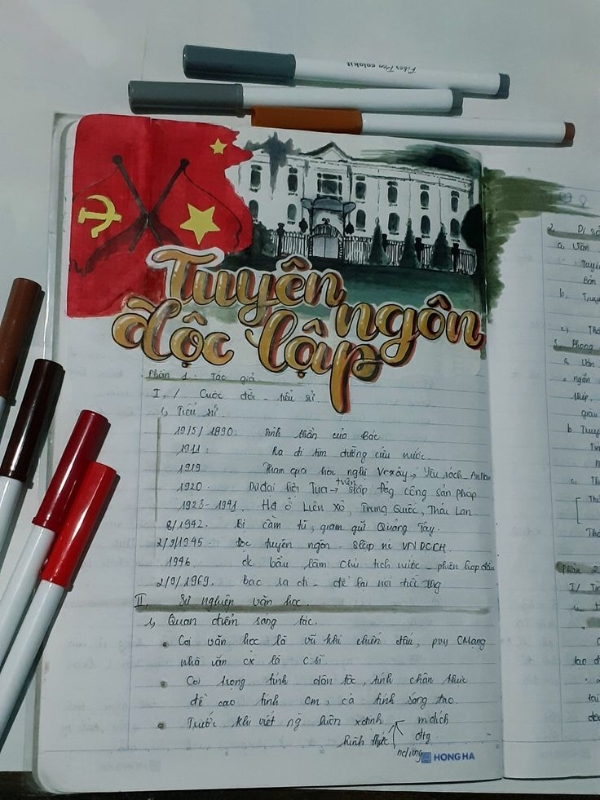 Tuyên ngôn
độc lập
Phần 1: Tác giả
I. / Cuộc đời - tiểu sử
1) Tiểu sử
19/5/1890: sinh thần của Bác
1911: Ra đi tìm đường cứu nước
1919 tham gia hội nghị Vecxây → Yêu sách
1920 Dự đại hội Tua → stlập Đảng cộng sản pháp
1923 - 1941 Hđ ở Liên Xô, Trung Quốc, Thái Lan
8/1942. Bị cầm tù, giam giữ Quảng Tây
2/9/1945 đọc tuyên ngôn - slập nc VNDCCH
1946 đc bầu làm Chủ tịch nước - phiên họp đầu
2/9/1969. bác ra đi - để lại nỗi tiếc
II Sự nghiệp văn học.
1) Quan điểm sáng tác
Coi văn học là vũ khí chiến đấu, pvụ CMạng
nhà văn cx là c sĩ
Coi trọng tính dân tộc, tính chân thực
đề cao tính cm, cá tính sáng tạo
Trước khi viết ng luôn xđịnh mđích
đtg
hình thức ndung
HONG HA